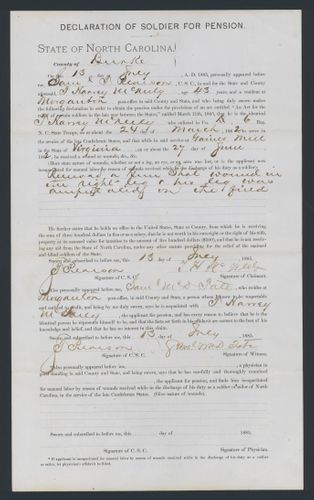 DECLARATION OF SOLDIER FOR PENSION.
STATE OF NORTH CAROLINA,
County of Burke
On this 13 day of July, A. D. 1885, personally appeared before
me, C. S. C., in and for the State and County
aforesaid, J Harvy McNeely age 43 years, and a resident at
Morganton post-office in said County and State, and who being duly sworn makes
the following declaration in order to obtain the pension under the provisions of an act entitled "An Act for the
relief of certain soldiers in the late war between the States," ratified March 11th, 1885, that he is the identical
J Harvey McNeely who enlisted in Co. 6
N. C. State Troops, on or about the 24 day of March 1862 to serve in
the service of the late Confederate States, and that while in said service at Gaines Mill
in the State of Virginia, on or about the 27 day of June
1862, he received a wound or wounds, &c.
Received a fire shot wound in
right leg & his leg was
amputated on the field
He further states that he holds no office in the United States, State or County, from which he is receiving
the sum of three hundred dollars in fees or as a salary,
property in its assessed value for taxation to the amount of five hundred dollars ($500), and that he is not receiv-
ing any aid from the State of North Carolina, under any other statute providing for the relief of the maimed
and blind soldiers of the State.
Sworn and subscribed to before me, this 13 day of July 1885.
J Pearson
Signature of C. S. C.
Signature of Claimant.
Also personally appeared before me,
Morganton post-office in said County and State, a person whom I know to be respectable
and entitled to credit, and being by me duly sworn, says he is acquainted with J Harvey
McNeely, the applicant for pension, and has every reason to believe that he is the
identical person he represents himself to be, and that the facts set forth in this affidavit are correct to the best of his
knowledge and belief, and that he has no interest in this claim.
Sworn and subscribed to before me, this 13 day of July 1885.
J Pearson
Signature of C. S. C.
Signature of Witness.
Also personally appeared before me, a physician in
good standing in said County and State, and being sworn, says that he has carefully and thoroughly examined
, the applicant for pension, and finds him incapacitated
for manual labor by reason of wounds received while in the discharge of his duty as a soldier or sailor of North
Carolina, in the service of the late Confederate States. (Give nature of wounds).
Sworn and subscribed to before me, this day of 1885.
Signature of C. S. C.
Signature of Physician.
If applicant is incapacitated for manual labor by reason of wounds received while in the discharge of his duty as a soldier
or sailor, let physician's affidavit be filled.